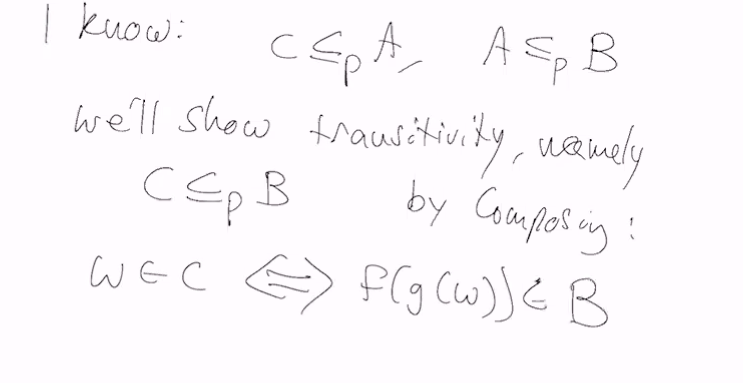 I know: C ≤p A, A ≤p B
we'll show transitivity, namely
C ≤p B by Composing:
w ∈ C ⟺ f(g(w)) ∈ B